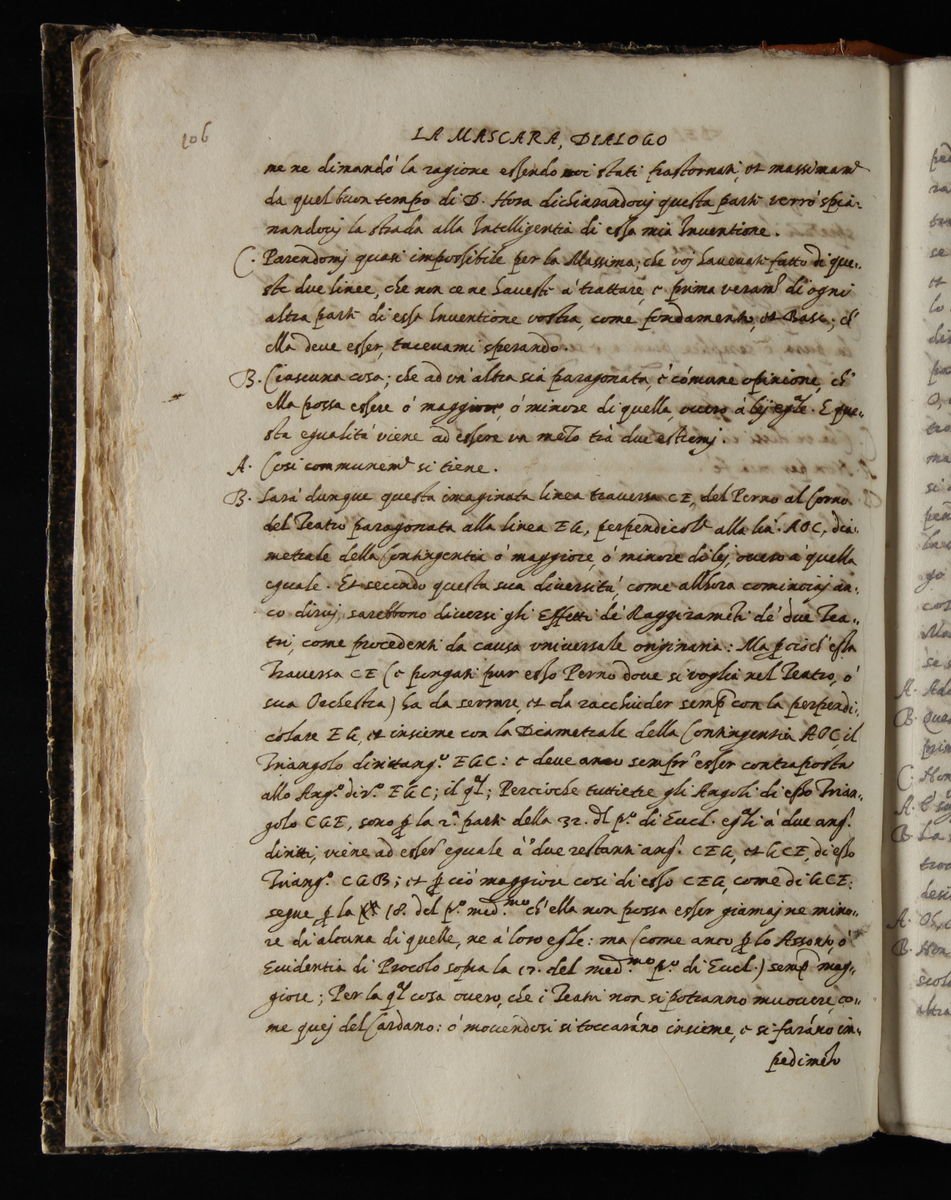 106
LA MASCARA, DIALOGO
me ne dimandò la ragione essendo noi stati frastornati, et massimamᵉ
da quel buon tempo di D. Hora dichiarandovj questa parte verrò spia-
nandovj la strada alla Intelligentia di essa mia Inventione.
C. Parendomj quasi impossibile per la Massima; che voj havevate fatto di que-
ste due linee, che non ce ne haveste a trattare, e prima veramᵗᵉ di ogni
altra parte di essa Inventione vostra, come fondamento, et Base; chˢ
ella deve esser, tacevami sperando.
B. Ciascuna cosa; che ad un'altra sia paragonata, è cómune opinione, chˢ
ella possa essere ò maggiore, ò minore di quella, overo à lej eg.ˡᵉ. E que-
sta egualità viene ad essere un mezo trà due estremj.
A. Cosi communemᵗᵉ si tiene.
B. Sarà dunque questa imaginata linea traversa CE, del Perno al Corno
del Teatro paragonata alla linea EG, perpendicolᵉ alla liᵃ. AOC, dia-
metrale della Contingentia ò maggiore, ò minore di lej, overo a quella
eguale. Et secondo questa sua diversità, come allhora cominciaj an-
co dirvj, sarebbono diversi gli Effetti de' Raggiramēti de' due Tea-
tri, come procedenti da causa universale originaria: Ma ꝑcioch'essa
Traversa CE (e pongasi pur esso Perno dove si voglia nel Teatro, ò
sua Orchestra) ha da serrare, et da racchiuder semp̄ con la perpendi-
colare EG, et insieme con la Diametrale della Contingentia AOC, il
Triangolo dirittang.º EGC: e deve anco sempr' esser contraposta
allo Ang.º dir.º EGC; il q̄l; Percioche tuttietre gli Angoli di esso Trian-
golo CGE, sono ꝑ la 2.ᵃ parte della 32. dl p.º di Eucl. eg.ˡⁱ à due ang.ⁱ
diritti, viene ad esser' eguale à' due restanti ang.ⁱ CEG, et GCE, di esso
Triang.º CGB; et ꝑ ciò maggiore cosi di esso CEG, come di GCE:
segue ꝑ la 18. del p.º med.ᵐᵒ ch'ella non possa esser giamaj ne mino-
re di alcuna di quelle, ne à loro eg.ˡᵉ: ma (come anco ꝑ lo Assonto, ò
Evidentia di Procolo sopra la 17. del med.ᵐᵒ p.º di Eucl.) semp̄ mag-
giore; Per la q̄l cosa overo, che i Teatri non si potranno muovere, co-
me quej del Cardano: ò movendosi si toccaràno insieme, e si faràno im-
pedimēto